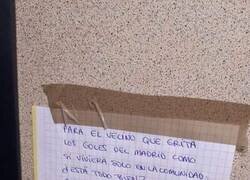 PARA EL VECINO QUE GRITA
LOS GOLES DEL MADRID COMO
SI VIVIERA SOLO EN LA COMUNIDAD:
¿ESTÁ TODO BIEN?